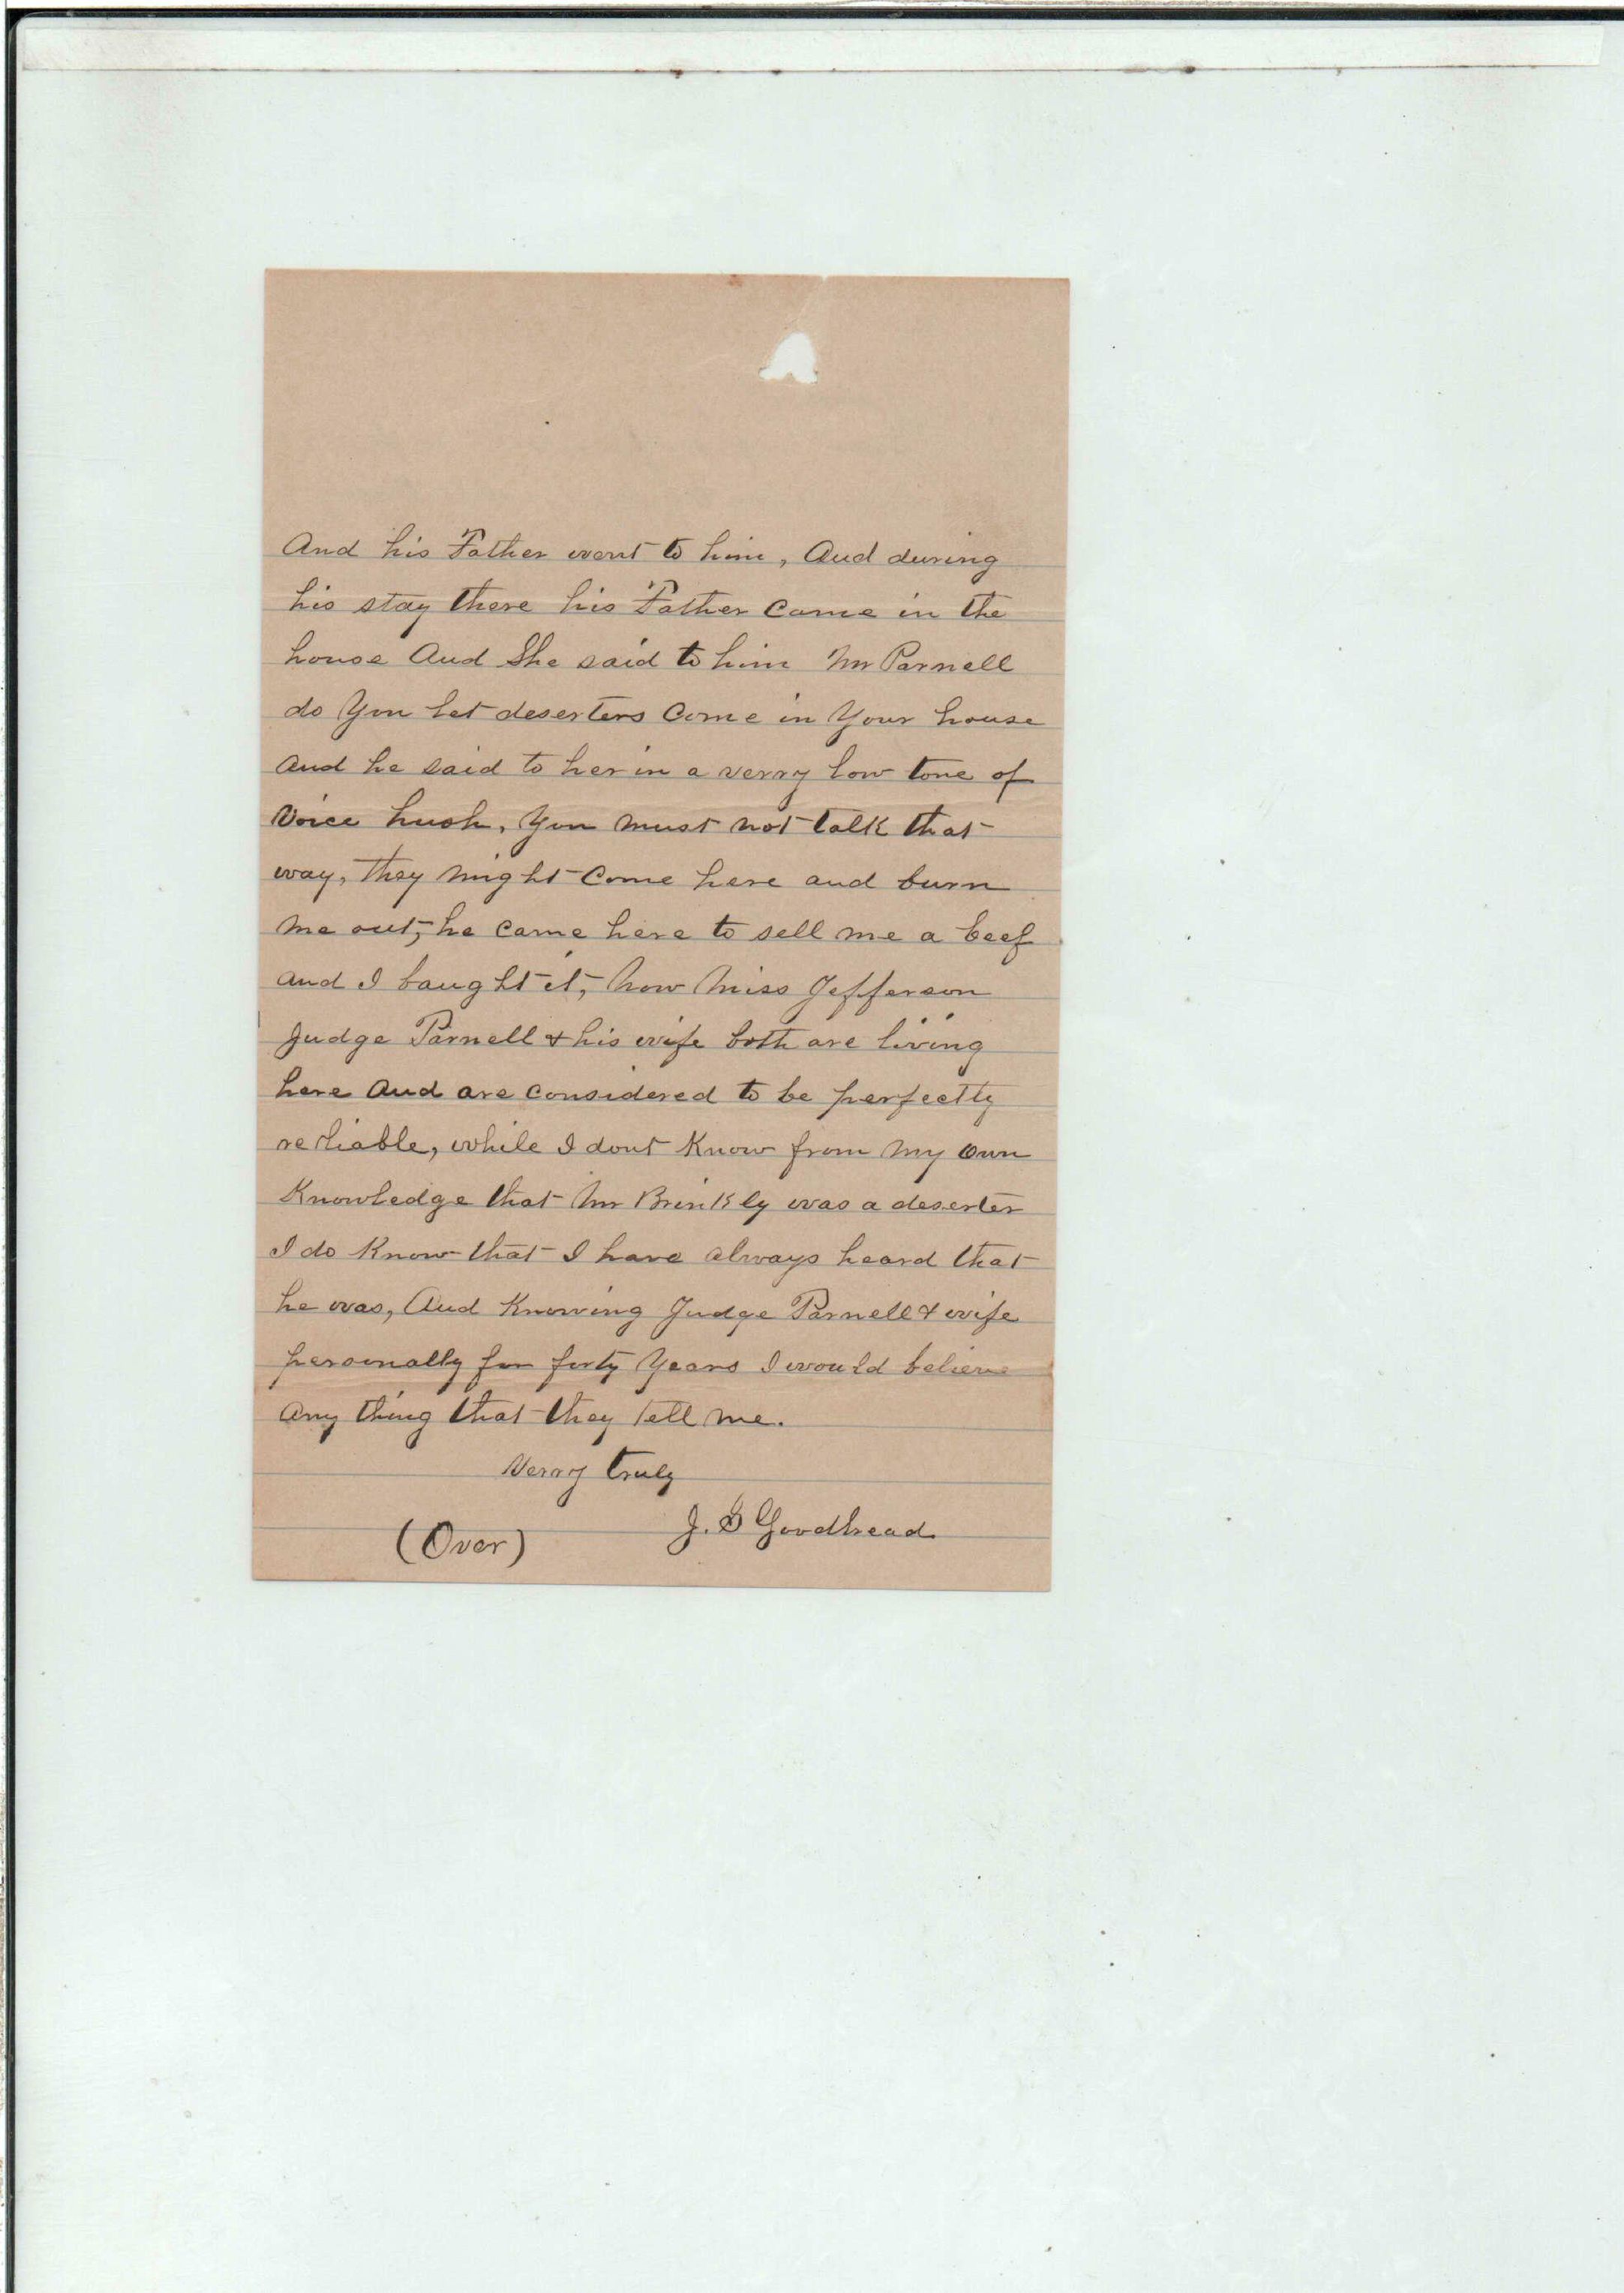 And his Father went to him, And during
his stay there his Father Came in the
house And She said to him Mr Parnell
do You let deserters Come in Your house
And he said to her in a verry low tone of
Voice hush, You must not talk that
way, they might Come here and burn
me out, he Came here to sell me a beef
and I baught it, Now Miss Jefferson
Judge Parnell & his wife both are living
here And are Considered to be perfectly
reliable, while I dont Know from my own
Knowledge that Mr Brinkly was a deserter
I do Know that I have always heard that
he was, And Knowing Judge Parnell & wife
personally for forty Years I would believe
Any thing that they tell me.
Verry truly
J. G Goodhead
(Over)